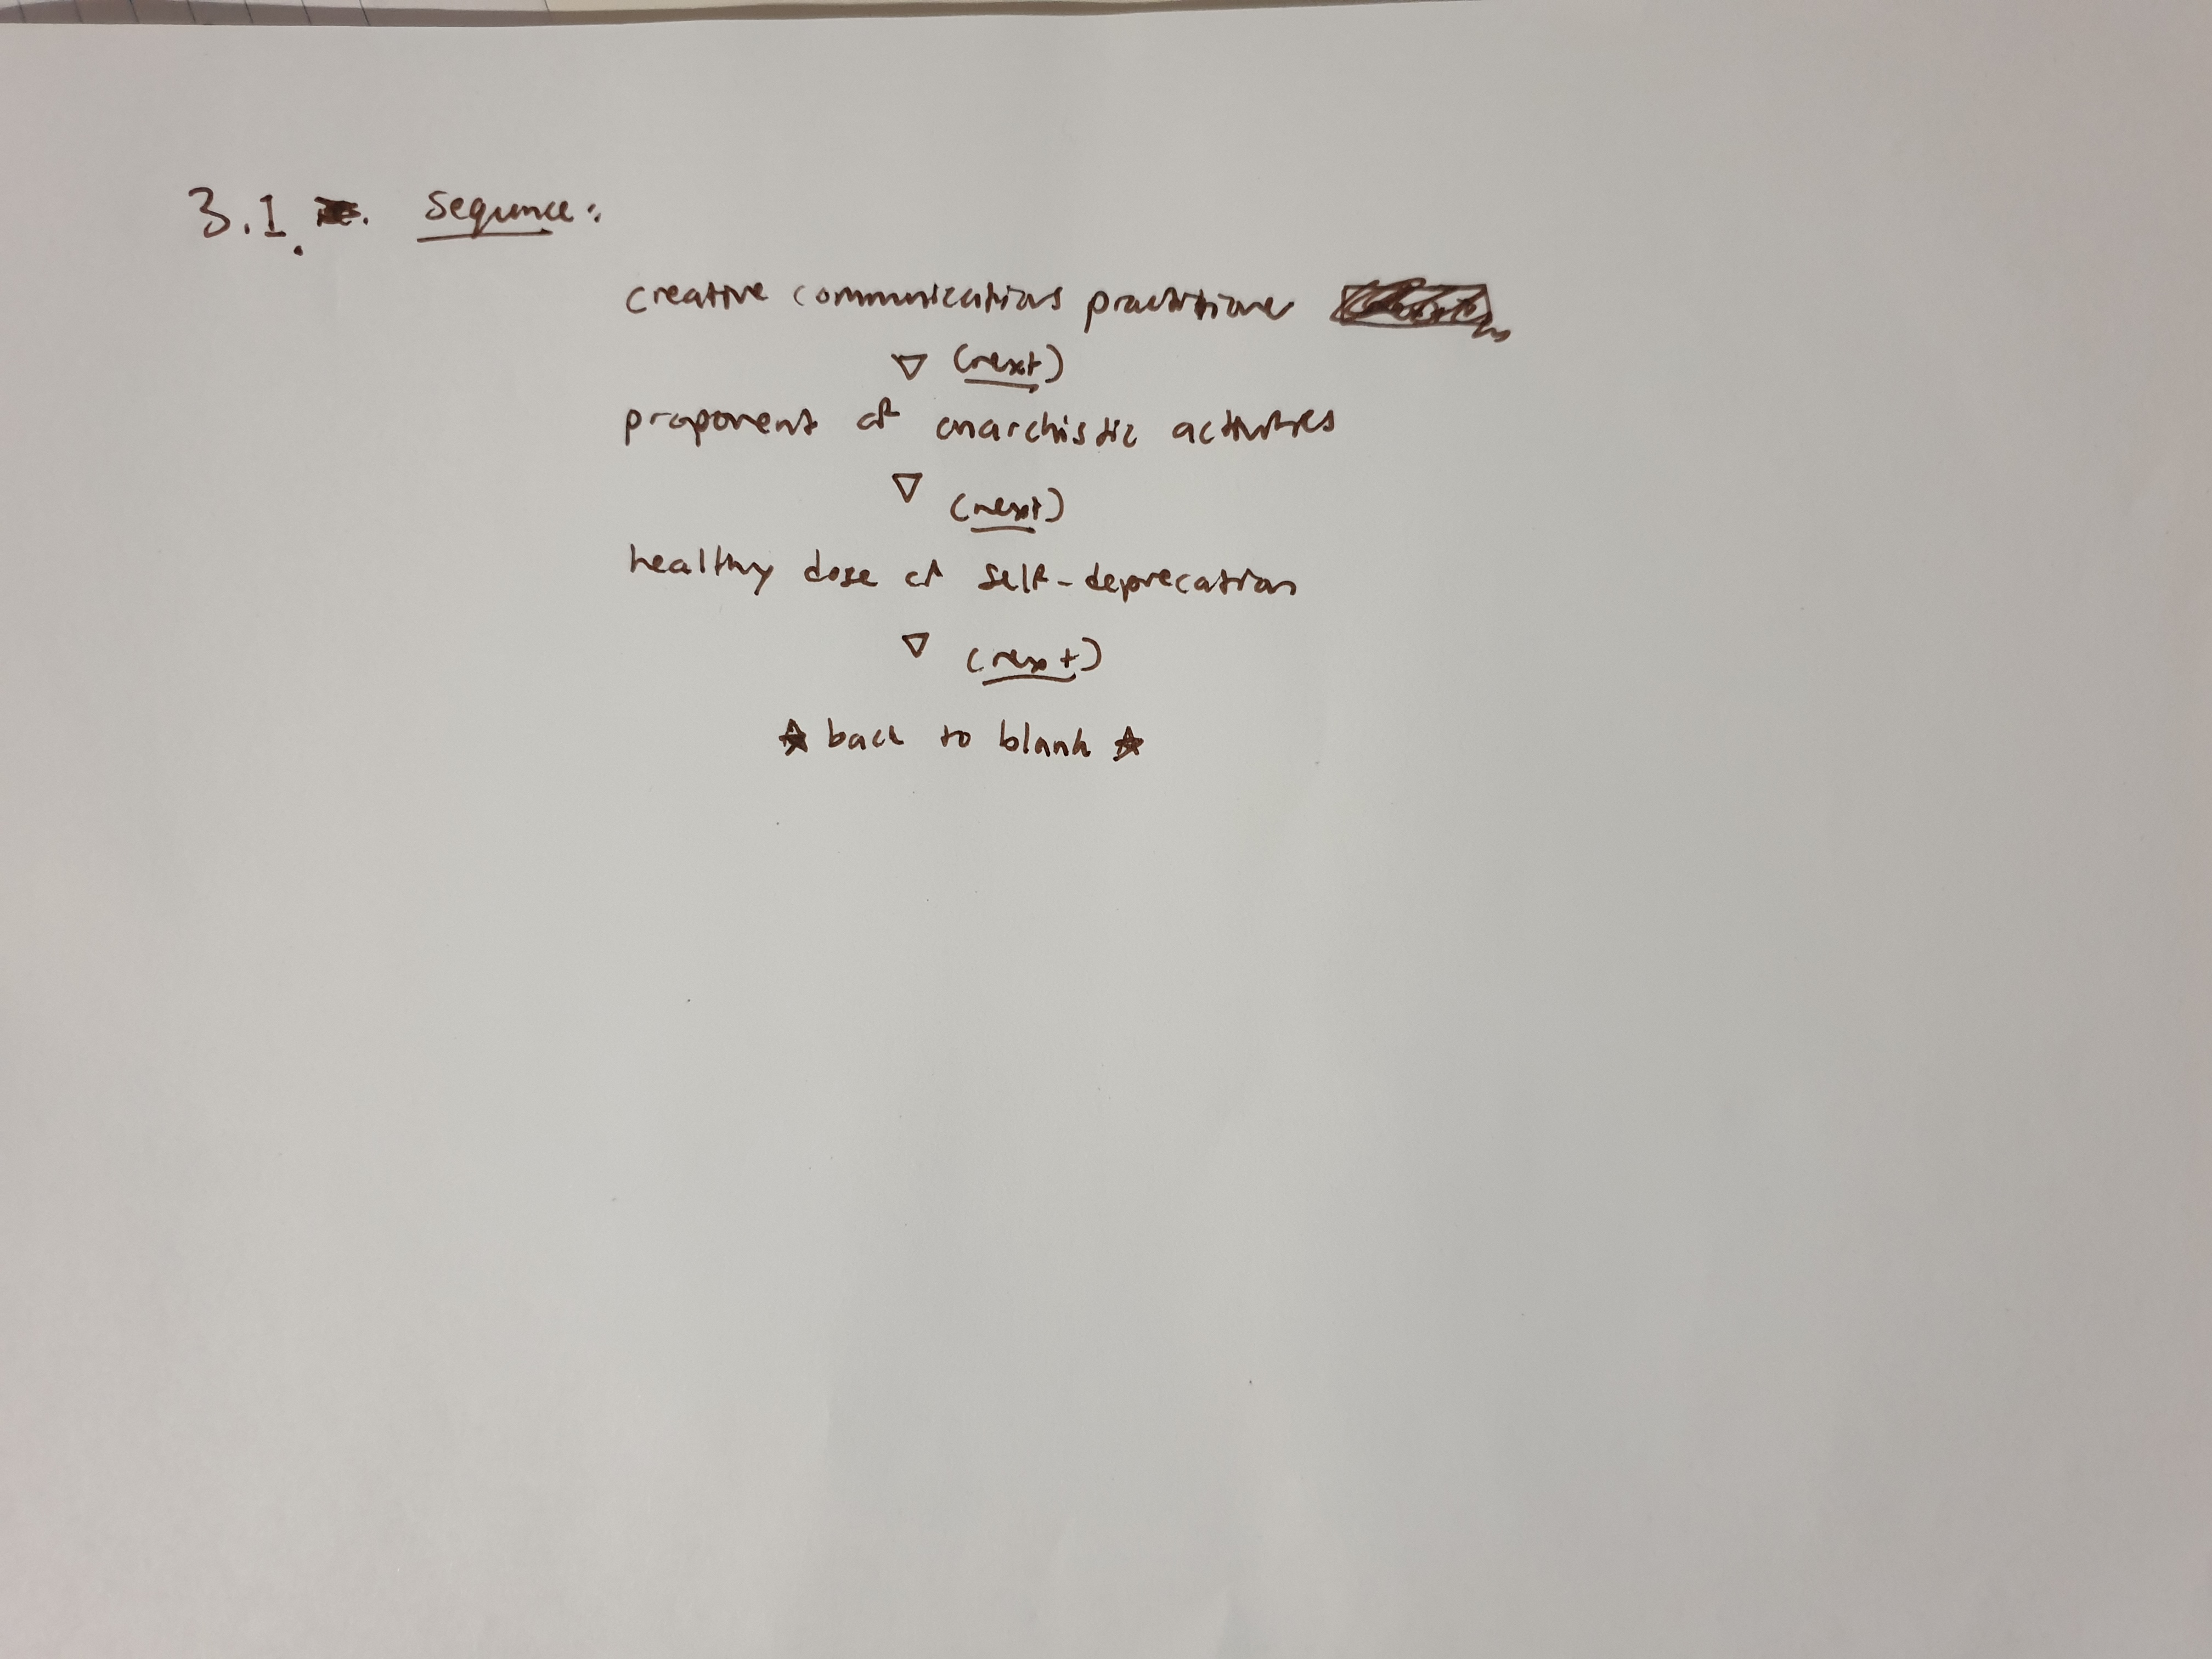 3.1. Sequence:
creative communications practitioner
▽ (next)
proponent of anarchistic activities
▽ (next)
healthy dose of self-deprecation
▽ (next)
☆ back to blank ☆